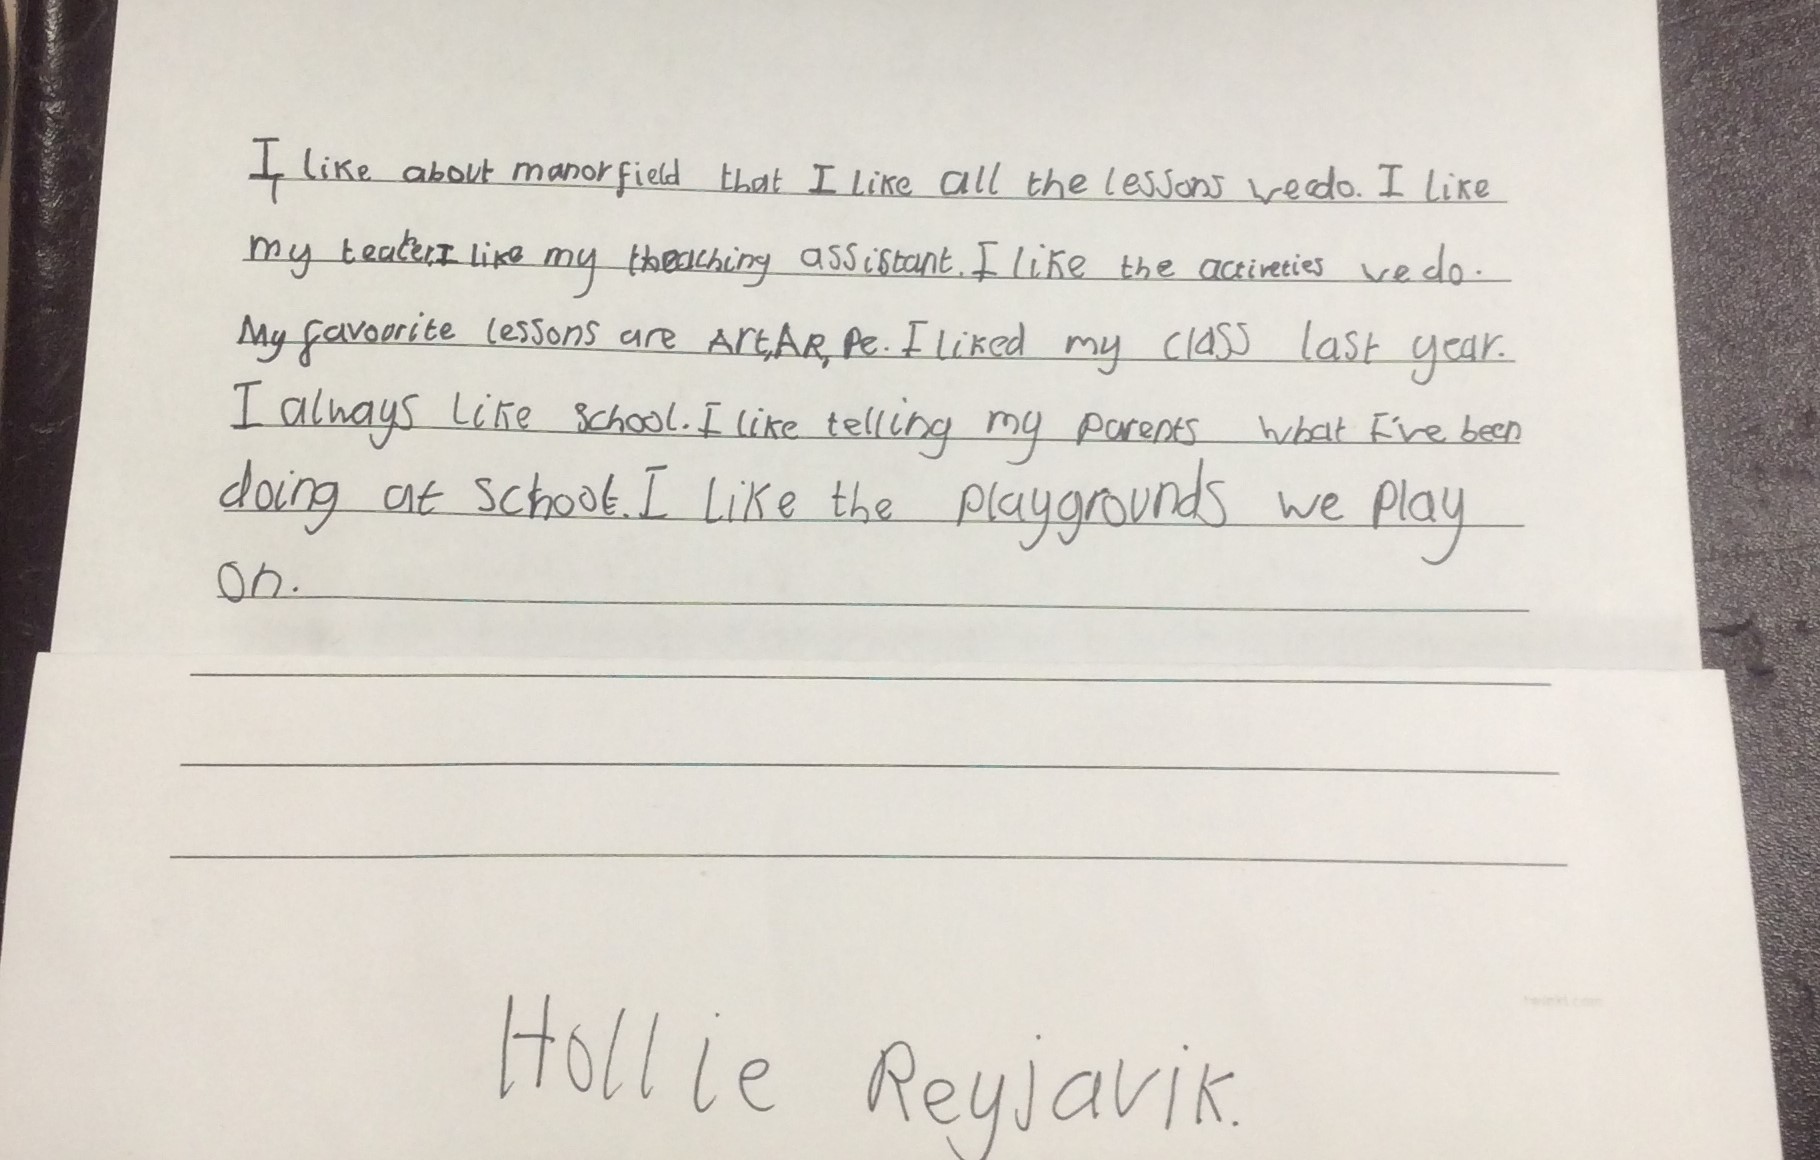 I like about manorfield that I like all the lessons we do. I like
my teater. I like my theaching assistant. I like the activeties we do.
My favourite lessons are Art, AR, Pe. I liked my class last year.
I always like school. I like telling my parents what I've been
doing at school. I like the playgrounds we play
on.
Hollie Reyjavik.